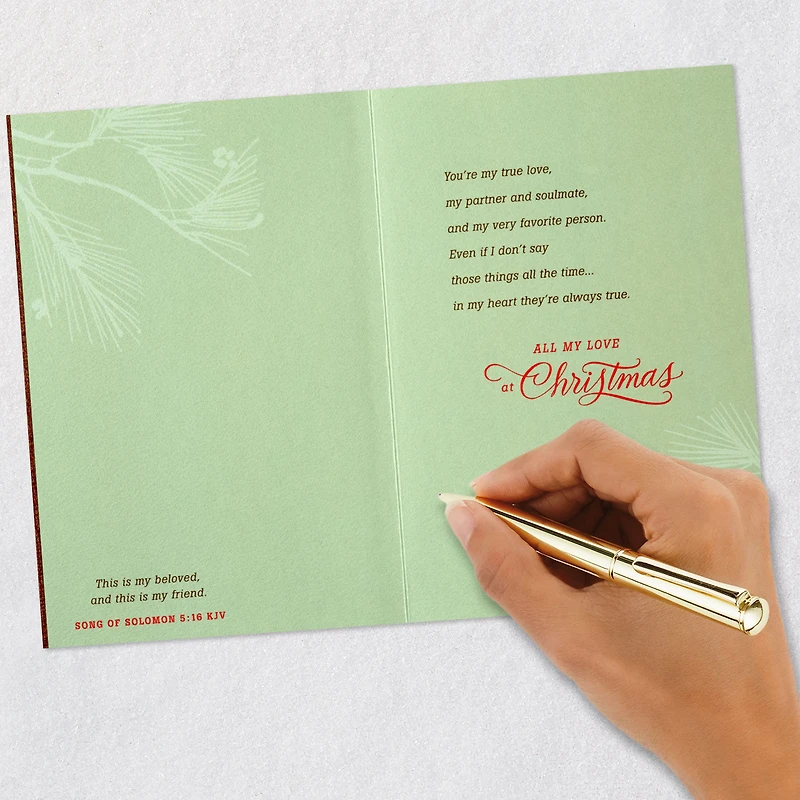 This is my beloved,
and this is my friend.
SONG OF SOLOMON 5:16 KJV
You're my true love,
my partner and soulmate,
and my very favorite person.
Even if I don't say
those things all the time...
in my heart they're always true.
ALL MY LOVE
at Christmas